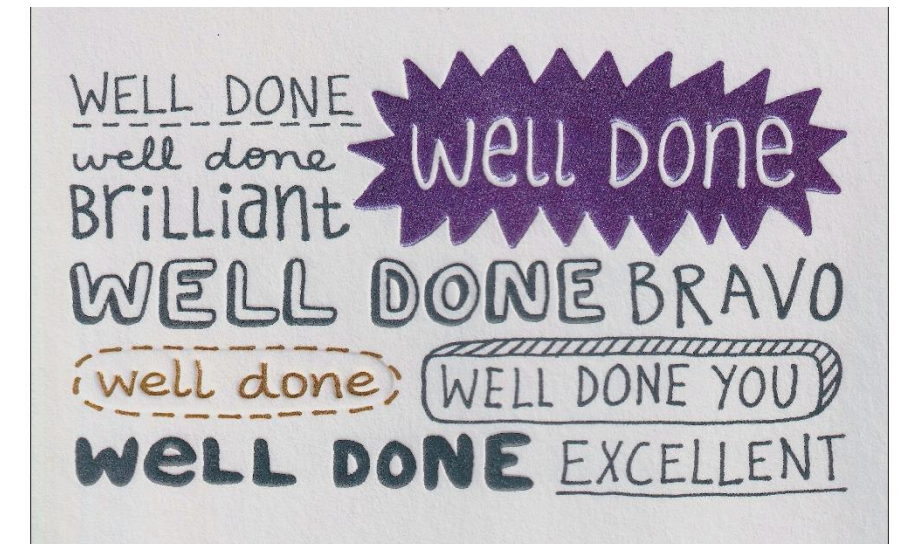 WELL DONE
well done
BriLLiant
well Done
WELL DONE BRAVO
well done
WELL DONE YOU
WeLL DoNE EXCELLENT